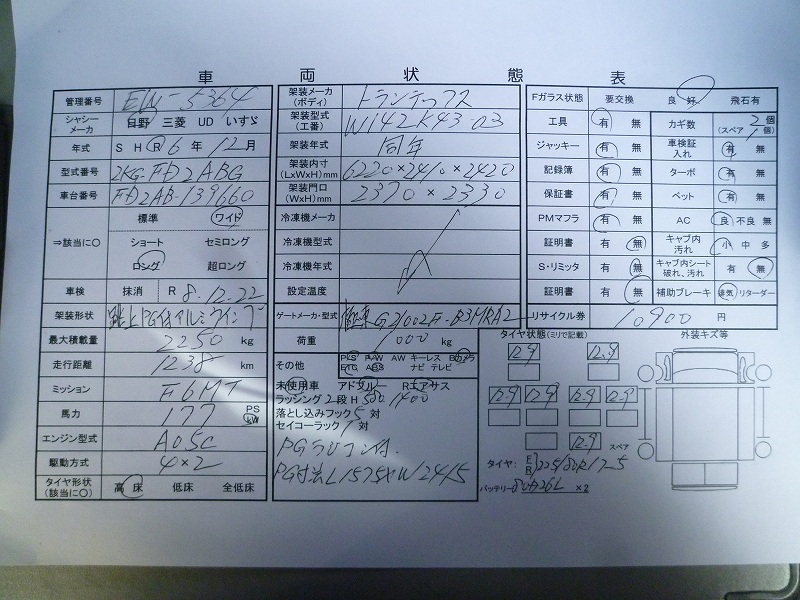 車両状態表
管理番号 EW-5364
シャシーメーカ 日野 三菱 UD いすゞ
年式 S H R 6 年 12 月
型式番号 2KG-FD2ABG
車台番号 FD2AB-139660
⇒該当に○ 標準 ワイド
ショート セミロング
ロング 超ロング
車検 抹消 R 8.12.22
架装形状
最大積載量 2250 kg
走行距離 1238 km
ミッション F6MT
馬力 177 PS kW
エンジン型式 A05C
駆動方式 4×2
タイヤ形状(該当に○) 高床 低床 全低床
架装メーカ(ボディ) トランテックス
架装型式(工番) W142K43-03
架装年式 同年
架装内寸(LxWxH)mm 6220×2410×2420
架装門口(WxH)mm 2370×2330
冷凍機メーカ
冷凍機型式
冷凍機年式
設定温度
ゲートメーカ・型式
荷重 1000 kg
その他 P/S P/W AW キーレス Bカメラ
ETC ABS ナビ テレビ
未使用車 アドブルー Rエアサス
ラッシング2段H 500.1400
落とし込みフック 5 対
セイコーラック 1 対
PGラジコン付.
PG寸法L1575×W2415
Fガラス状態 要交換 良好 飛石有
工具 有 無 カギ数 2個(スペア 1個)
ジャッキー 有 無 車検証入れ 有 無
記録簿 有 無 ターボ 有 無
保証書 有 無 ベット 有 無
PMマフラ 有 無 AC 良 不良 無
証明書 有 無 キャブ内汚れ 小 中 多
S・リミッタ 有 無 キャブ内シート破れ、汚れ 有 無
証明書 有 無 補助ブレーキ 排気 リターダー
リサイクル券 10900 円
タイヤ状態(ミリで記載) 外装キズ等
12.9 12.9
12.9 12.9 12.9 12.9
12.9 スペア
タイヤ: F R 225/80R17-5
バッテリー ×2